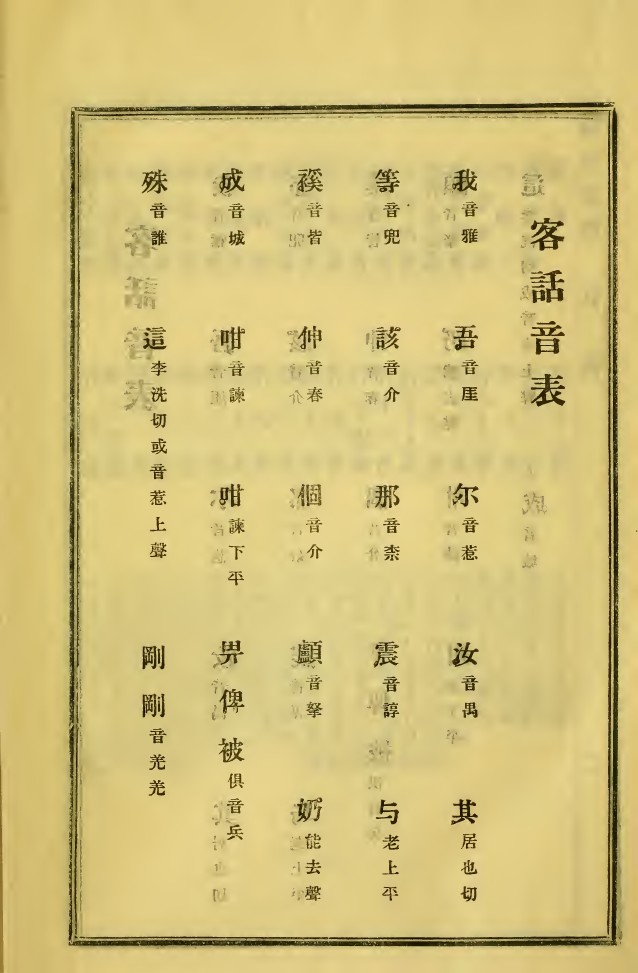 客話音表
我音雅 吾音厓 尔音惹 汝音禺 其居也切
等音兜 該音介 那音柰 震音諄 与老上平
徯音皆 伸音春 個音介 顫音拏 妳能去聲
成音城 咁音諫 咁諫下平 畀俾被俱音兵
殊音誰 這李洗切或音惹上聲 剛剛音羌羌